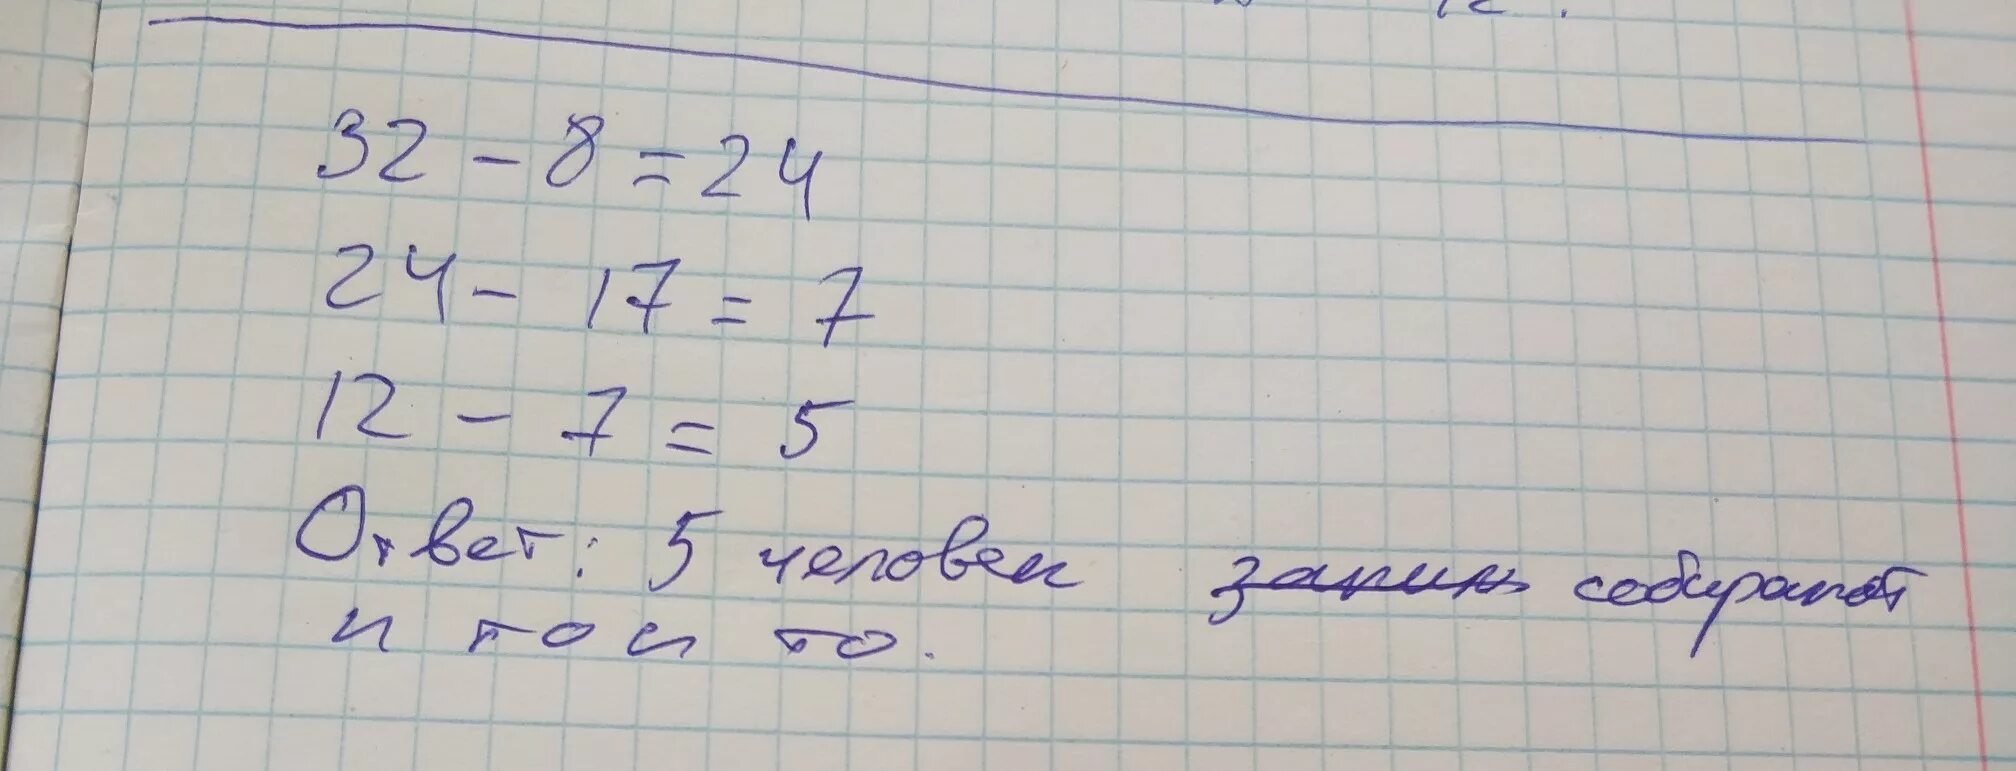 32 - 8 = 24
24 - 17 = 7
12 - 7 = 5
Ответ: 5 человек собирают
и то и то.